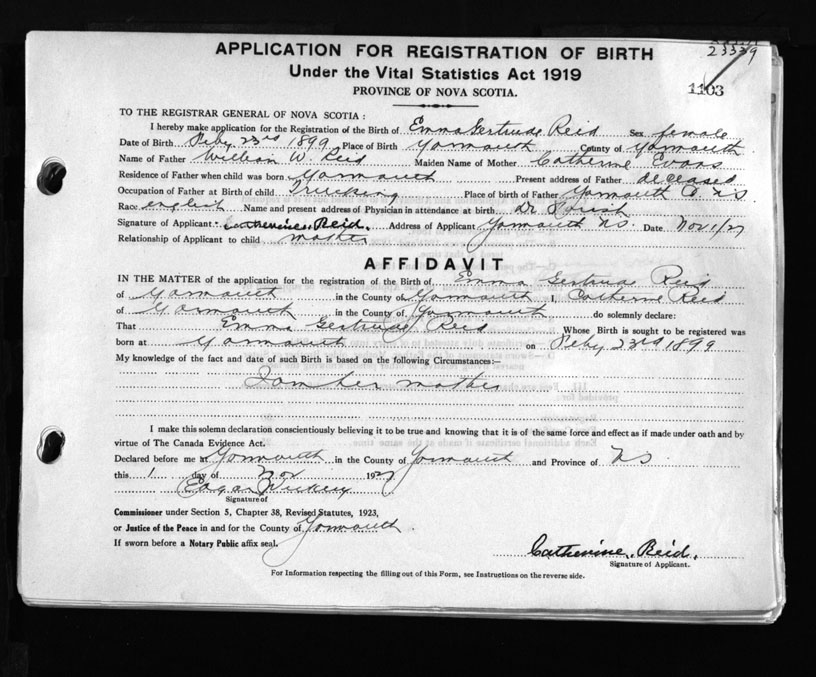 23339
1103
APPLICATION FOR REGISTRATION OF BIRTH
Under the Vital Statistics Act 1919
PROVINCE OF NOVA SCOTIA.
TO THE REGISTRAR GENERAL OF NOVA SCOTIA :
I hereby make application for the Registration of the Birth of Emma Gertrude Reid Sex female
Date of Birth Feby 23rd 1899 Place of Birth Yarmouth County of Yarmouth
Name of Father William W. Reid Maiden Name of Mother Catherine Evans
Residence of Father when child was born Yarmouth Present address of Father deceased
Occupation of Father at Birth of child Trucking Place of birth of Father Yarmouth Co NS
Race english Name and present address of Physician in attendance at birth Dr
Signature of Applicant Catherine Reid. Address of Applicant Yarmouth NS. Date Nov 1/27
Relationship of Applicant to child mother
AFFIDAVIT
IN THE MATTER of the application for the registration of the Birth of Emma Gertrude Reid
of Yarmouth in the County of Yarmouth I, Catherine Reid
of Yarmouth in the County of Yarmouth do solemnly declare:
That Emma Gertrude Reid Whose Birth is sought to be registered was
born at Yarmouth on Feby 23rd 1899
My knowledge of the fact and date of such Birth is based on the following Circumstances:—
I am her mother
I make this solemn declaration conscientiously believing it to be true and knowing that it is of the same force and effect as if made under oath and by
virtue of The Canada Evidence Act.
Declared before me at Yarmouth in the County of Yarmouth and Province of NS
this 1 day of Nov 1927
Edgar
Signature of
Commissioner under Section 5, Chapter 38, Revised Statutes, 1923,
or Justice of the Peace in and for the County of Yarmouth.
If sworn before a Notary Public affix seal.
Catherine. Reid.
Signature of Applicant.
For Information respecting the filling out of this Form, see Instructions on the reverse side.